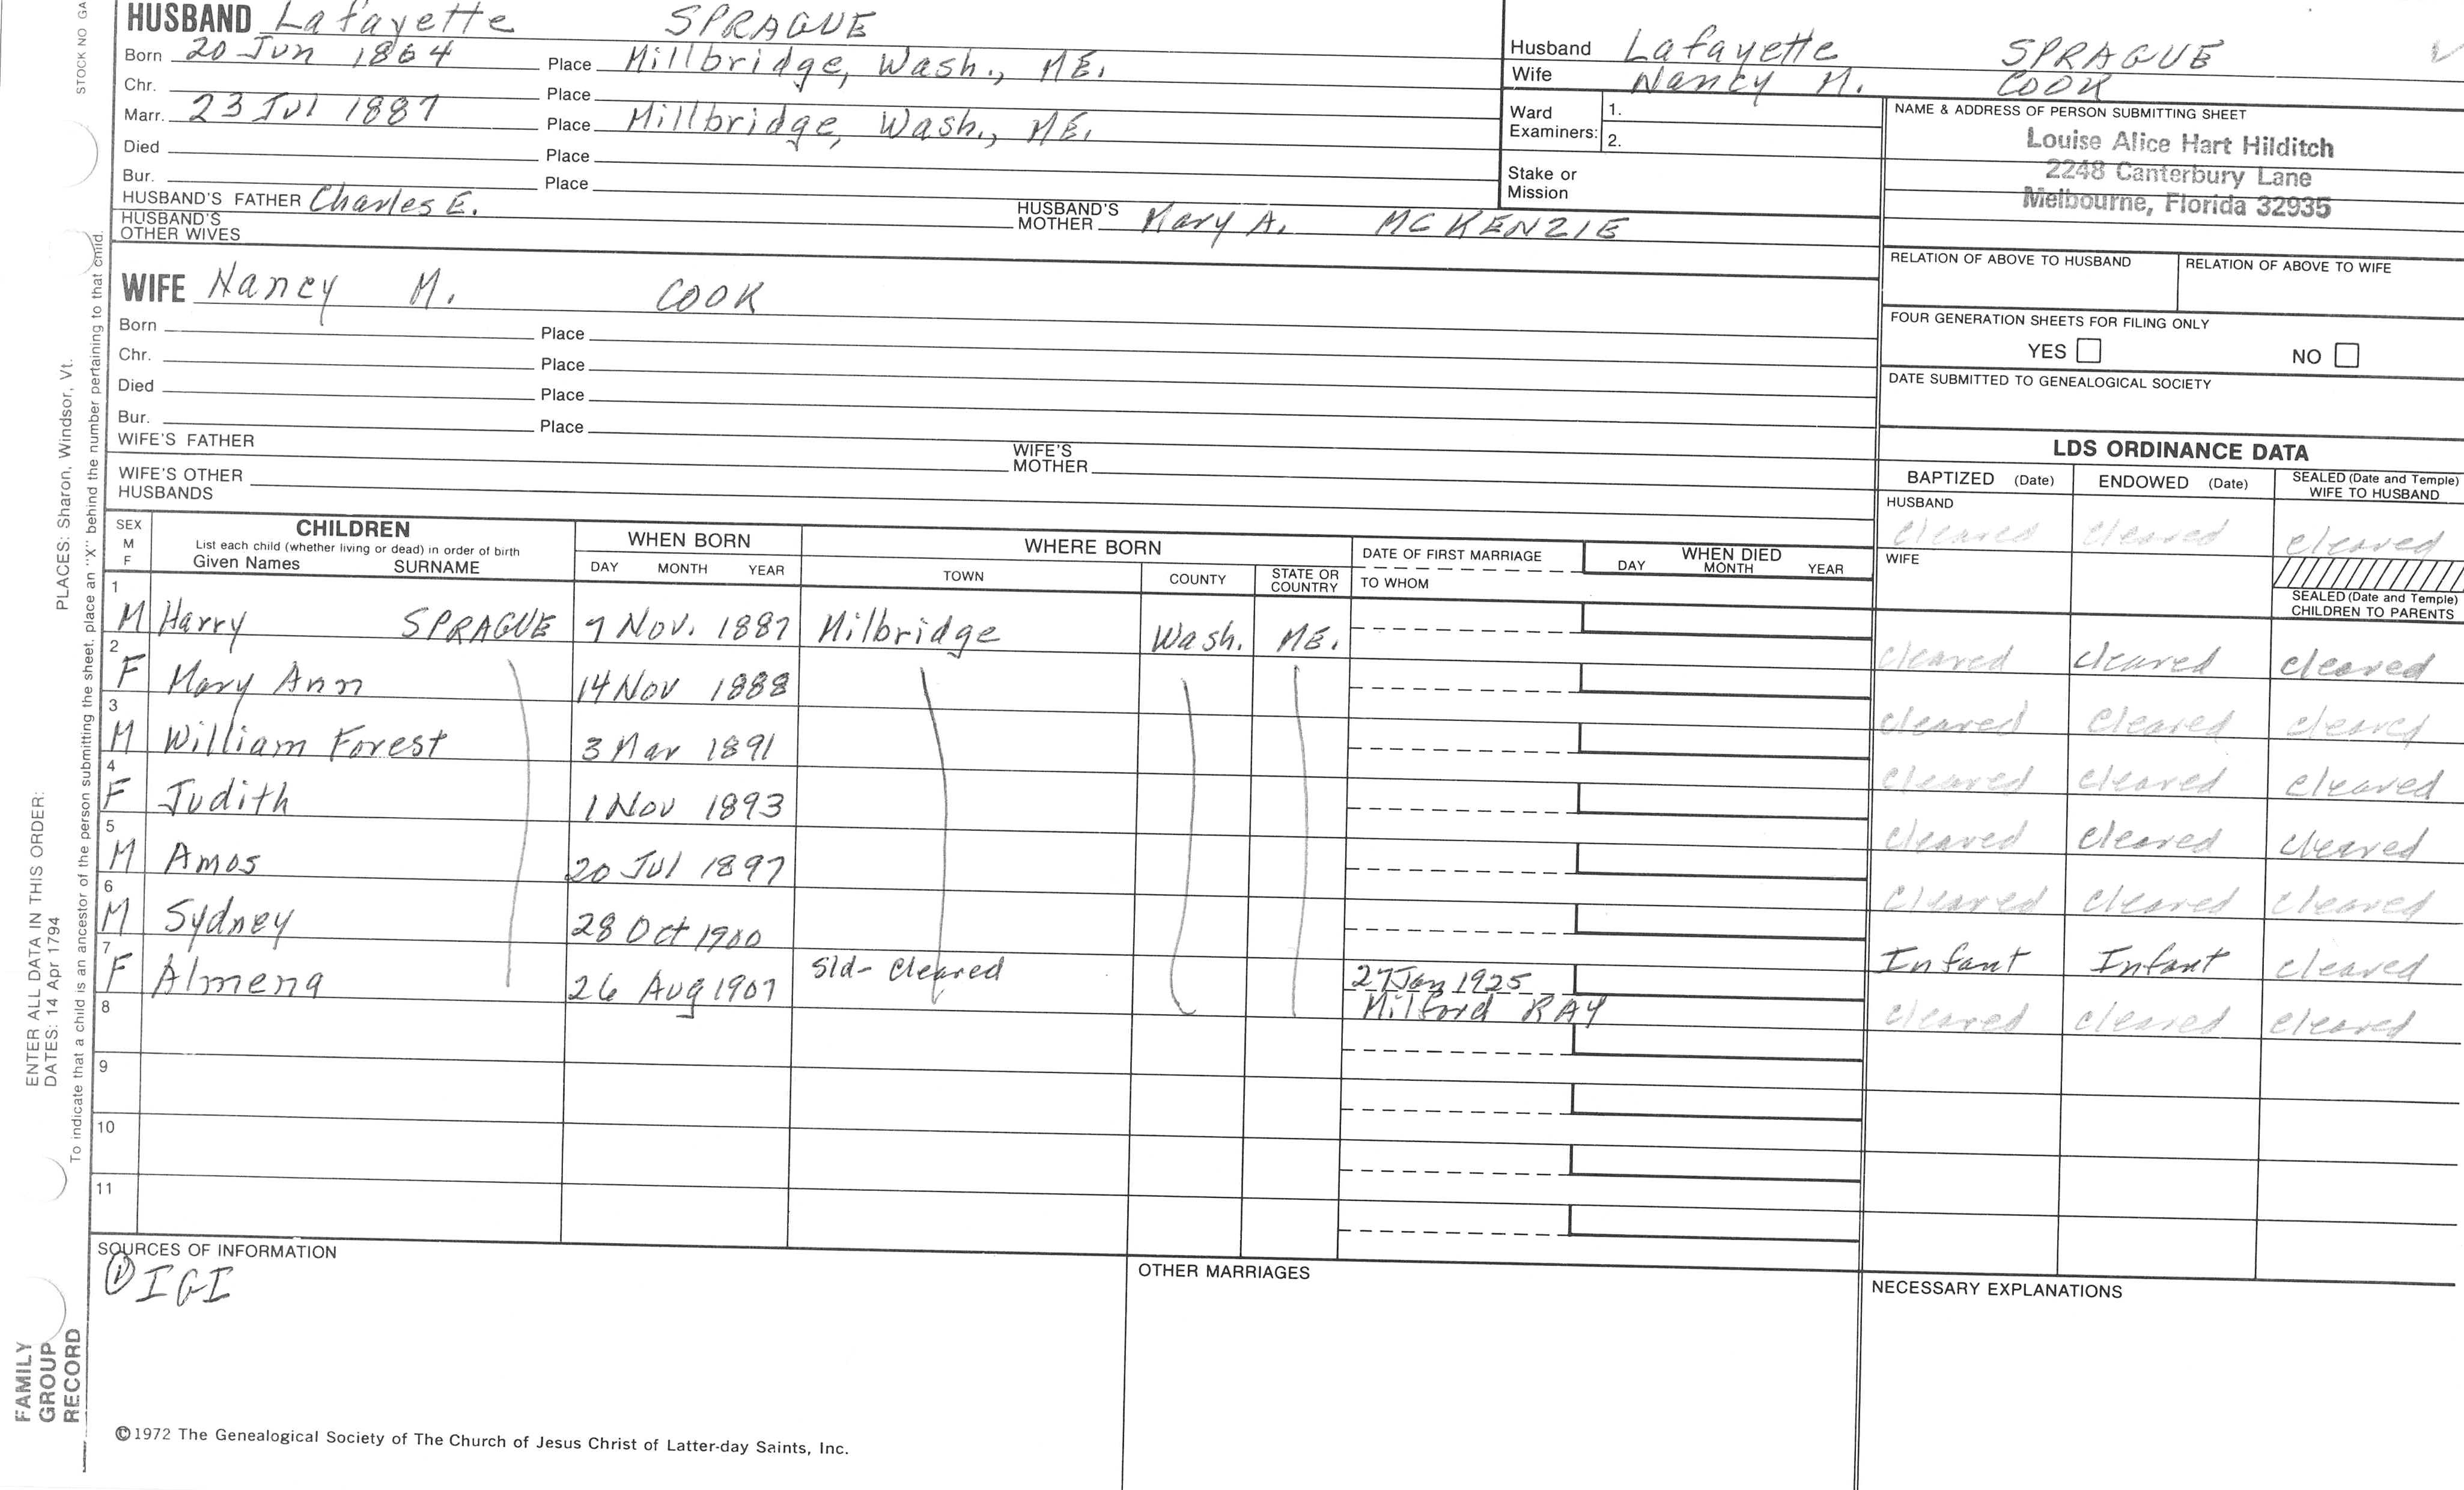 STOCK NO GA
HUSBAND Lafayette SPRAGUE
Born 20 Jun 1864 Place Millbridge, Wash., ME.
Chr. Place
Marr. 23 Jul 1887 Place Millbridge, Wash., ME.
Died Place
Bur. Place
HUSBAND'S FATHER Charles E. HUSBAND'S MOTHER Mary A. MCKENZIE
HUSBAND'S OTHER WIVES
WIFE Nancy M. COOK
Born Place
Chr. Place
Died Place
Bur. Place
WIFE'S FATHER WIFE'S MOTHER
WIFE'S OTHER HUSBANDS
Husband Lafayette SPRAGUE
Wife Nancy M. COOK
Ward Examiners: 1.
2.
Stake or Mission
NAME & ADDRESS OF PERSON SUBMITTING SHEET
Louise Alice Hart Hilditch
2248 Canterbury Lane
Melbourne, Florida 32935
RELATION OF ABOVE TO HUSBAND RELATION OF ABOVE TO WIFE
FOUR GENERATION SHEETS FOR FILING ONLY
YES NO
DATE SUBMITTED TO GENEALOGICAL SOCIETY
LDS ORDINANCE DATA
BAPTIZED (Date) ENDOWED (Date) SEALED (Date and Temple) WIFE TO HUSBAND
HUSBAND cleared cleared cleared
WIFE
SEALED (Date and Temple) CHILDREN TO PARENTS
SEX M F CHILDREN List each child (whether living or dead) in order of birth Given Names SURNAME
WHEN BORN DAY MONTH YEAR
WHERE BORN TOWN COUNTY STATE OR COUNTRY
DATE OF FIRST MARRIAGE TO WHOM
WHEN DIED DAY MONTH YEAR
1 M Harry SPRAGUE 7 Nov. 1887 Milbridge Wash. ME. cleared cleared cleared
2 F Mary Ann 14 Nov 1888 cleared cleared cleared
3 M William Forest 3 Mar 1891 cleared cleared cleared
4 F Judith 1 Nov 1893 cleared cleared cleared
5 M Amos 20 Jul 1897 cleared cleared cleared
6 M Sydney 28 Oct 1900 Infant Infant cleared
7 F Almena 26 Aug 1907 Sld- cleared 27 Jan 1925 Milford RAY cleared cleared cleared
8
9
10
11
SOURCES OF INFORMATION
① IGI
OTHER MARRIAGES
NECESSARY EXPLANATIONS
©1972 The Genealogical Society of The Church of Jesus Christ of Latter-day Saints, Inc.
FAMILY GROUP RECORD
ENTER ALL DATA IN THIS ORDER:
DATES: 14 Apr 1794
PLACES: Sharon, Windsor, Vt.
To indicate that a child is an ancestor of the person submitting the sheet, place an "X" behind the number pertaining to that child.